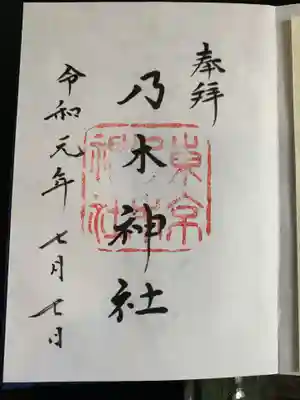 奉拝
乃木神社
東京乃木神社
令和元年 七月七日